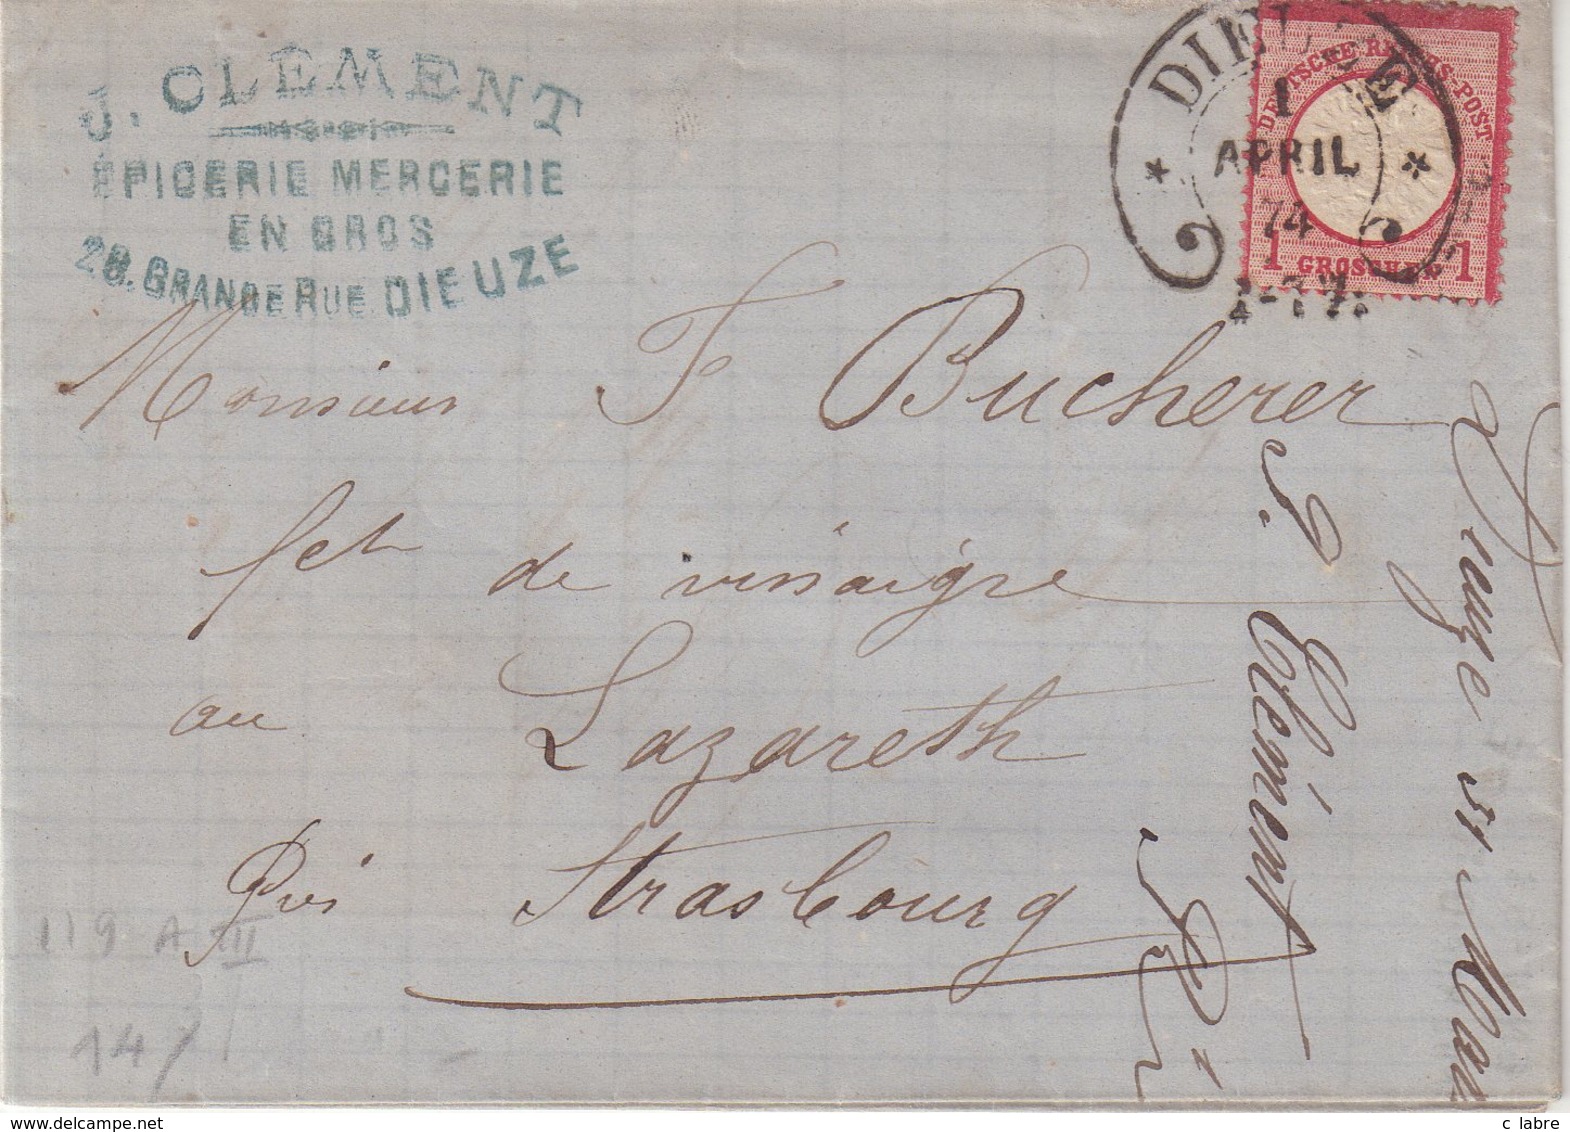 J. CLEMENT
EPICERIE MERCERIE
EN GROS
28. GRANDE RUE DIEUZE
DIEUZE
1
APRIL
74
DEUTSCHE REICHS-POST
1 GROSCHEN 1
Monsieur F Bucherer
fct de vinaigre
au Lazareth
près Strasbourg
Dieuze 31 Mars
J. Clément
119 A III
14
delcampe.net
c labre